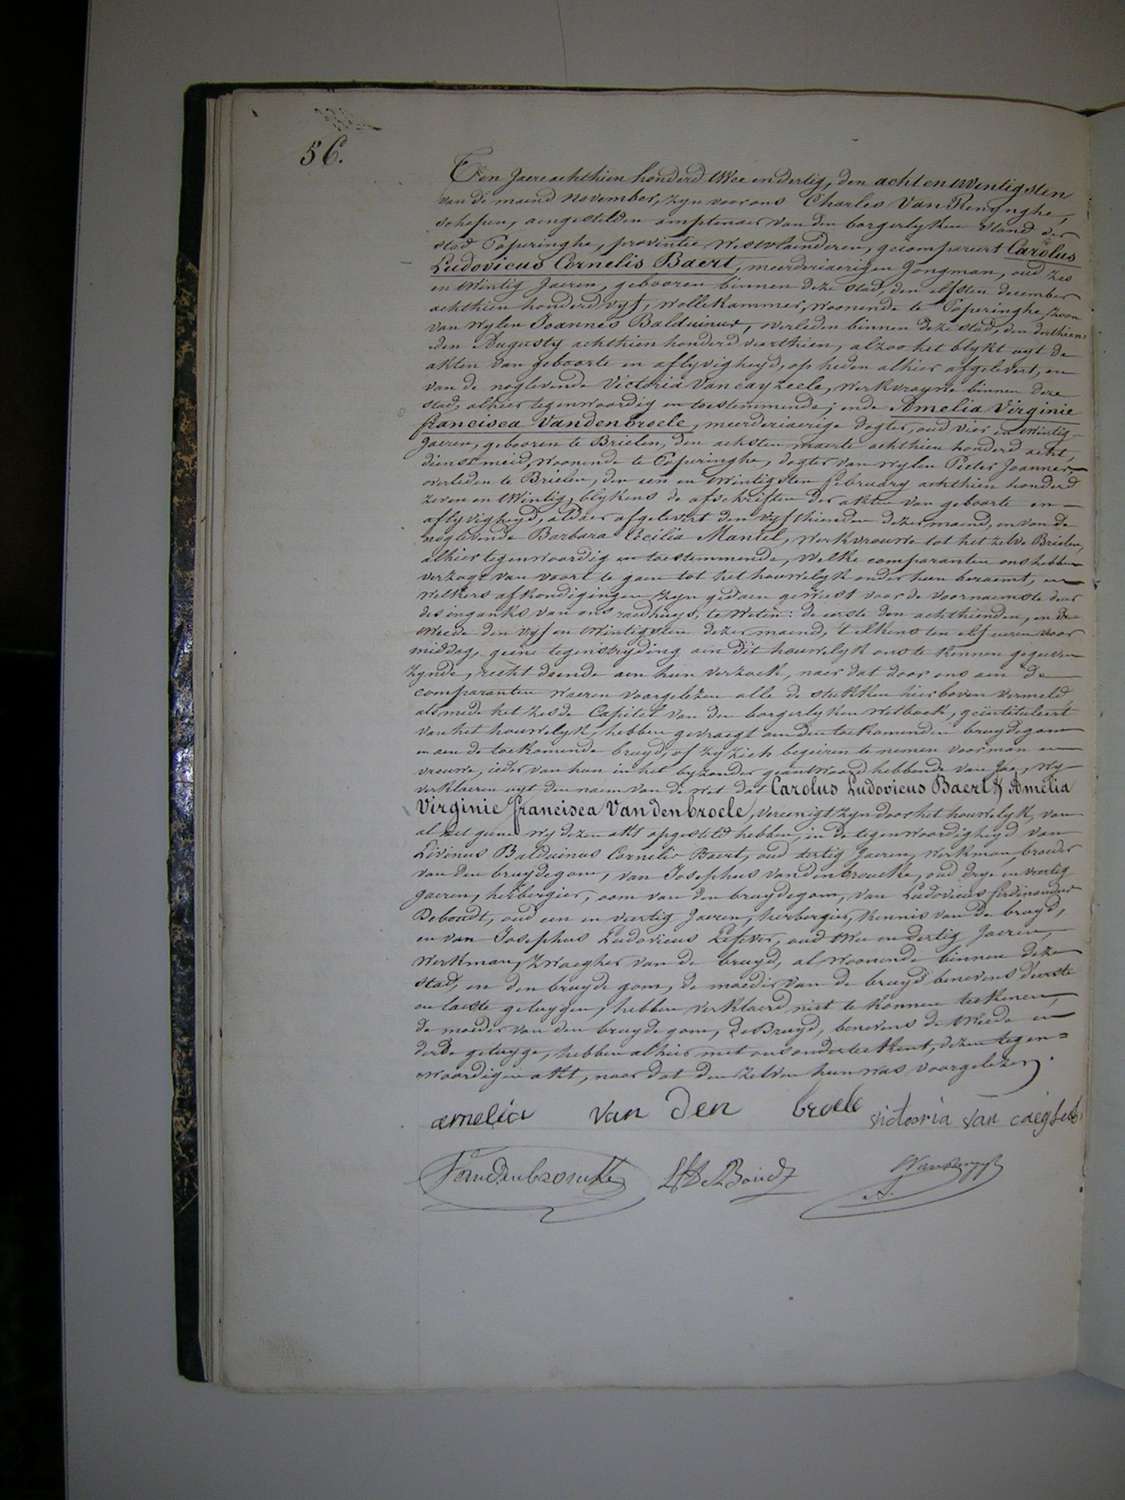 56.
Ten Jaere achthien honderd twee en dertig, den acht en twentigsten
van de maend November, zyn voor ons Charles Van Renynghe,
schepen, aengestelden amptenaer van den borgerlyken stand der
stad Poperinghe, provintie Westvlaenderen, gecompareert Carolus
Ludovicus Cornelis Baert, meerderjaerigen Jongman, oud zes
en twintig Jaeren, gebooren binnen deze stad, den elfsten december
achthien honderd vyf, wollekammer, woonende te Poperinghe, zoon
van wylen Joannes Balduinus, overleden binnen deze stad, den derthien-
den Augusty achthien honderd veerthien, alzoo het blykt uyt de
akten van geboorte en aflyvigheyd, op heden alhier afgelevert, en
van de noglevende Victoria Vancayzeele, werkvrouwe binnen deze
stad, alhier tegenwoordig en toestemmende; ende Amelia Virginie
francisca Vandenbroele, meerderjaerige dogter, oud vier en twintig
Jaeren, gebooren te Brielen, den achsten maerte achthien honderd acht,
dienstmeid, woonende te Poperinghe, dogter van wylen Pieter Joannes,
overleden te Brielen, den een en twintigsten february achthien honderd
zeven en twintig, blykens de afschriften der akten van geboorte en
aflyvigheyd, aldaer afgelevert den vyfthienden dezer maend, en van de
noglevende Barbara Cecilia Mantel, werkvrouwe tot het zelve Brielen,
alhier tegenwoordig en toestemmende, welke comparanten ons hebben
verzogt van voort te gaen tot het houwelyk onder hun beraemt, en
welkers afkondigingen zyn gedaen geweest voor de voornaemste deur
des ingangs van ons raedhuys, te weten: de eerste den achthienden, en de
tweede den vyf en twintigsten dezer maend, 't elkens ten elf uren voor
middag, geene tegenstryding aen dit houwelyk ons te kennen gegeven
zynde, recht doende aen hun verzoek, naer dat door ons aen de
comparanten waeren voorgelezen alle de stukken hierboven vermeld
als mede het zesde Capitel van den borgerlyken wetboek, geïntituleert
van het houwelyk, hebben gevraegt aen den toekomenden bruydegom
en aen de toekomende bruyd, of zy zich begeiren te nemen voor man en
vrouwe, ieder van hun in het byzonder geantwoord hebbende van Jae, wy
verklaeren uyt den naem van de wet dat Carolus Ludovicus Baert & Amelia
Virginie francisca Vandenbroele, vereenigt zyn door het houwelyk, van
al het geene wy dezen akt opgesteld hebben, in de tegenwoordigheyd van
Livinus Balduinus Cornelis Baert, oud dertig Jaeren, werkman, broeder
van den bruydegom, van Josephus Vandenbroucke, oud drye en veertig
Jaeren, herbergier, oom van den bruydegom, van Ludovicus ferdinandus
Deboudt, oud een en veertig Jaeren, herbergier, kennis van de bruyd,
en van Josephus Ludovicus Lefever, oud twee en dertig Jaeren,
werkman, zwaegher van de bruyd, al woonende binnen deze
stad, en den bruydegom, de moeder van de bruyd benevens d'eerste
en laeste getuygen, hebben verklaerd niet te konnen teekenen,
de moeder van den bruydegom, de Bruyd, benevens de tweede en
derde getuyge, hebben alhier met ons onderteekent, dezen tegen-
woordigen akt, naer dat den zelven hun was voorgelezen.
amelia van den broele victooria van